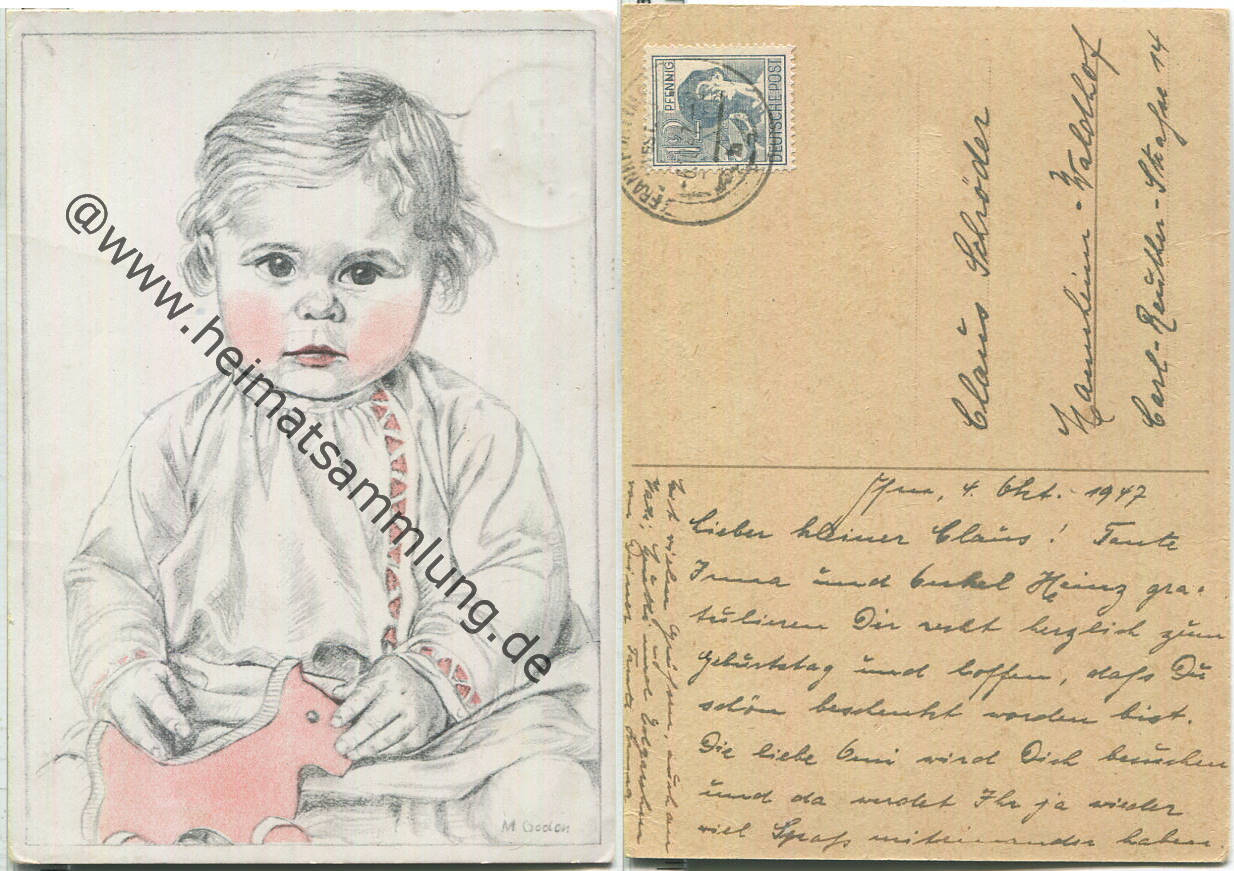 @www.heimatsammlung.de
M Godon
12 PFENNIG
DEUTSCHE POST
FRANKFURT
Claus Schröder
Mannheim-Waldhof
Carl-Reuther-Strasse 14
4. Okt. 1947
Lieber kleiner Claus! Tante
Irma und Onkel Heinz gra-
tulieren Dir recht herzlich zum
Geburtstag und hoffen, dass Du
schön beschenkt worden bist.
Die liebe Omi wird Dich besuchen
und da werdet Ihr ja wieder
viel Spass miteinander haben.
Mit vielen Grüssen, auch an
und
von Deiner Tante Irma